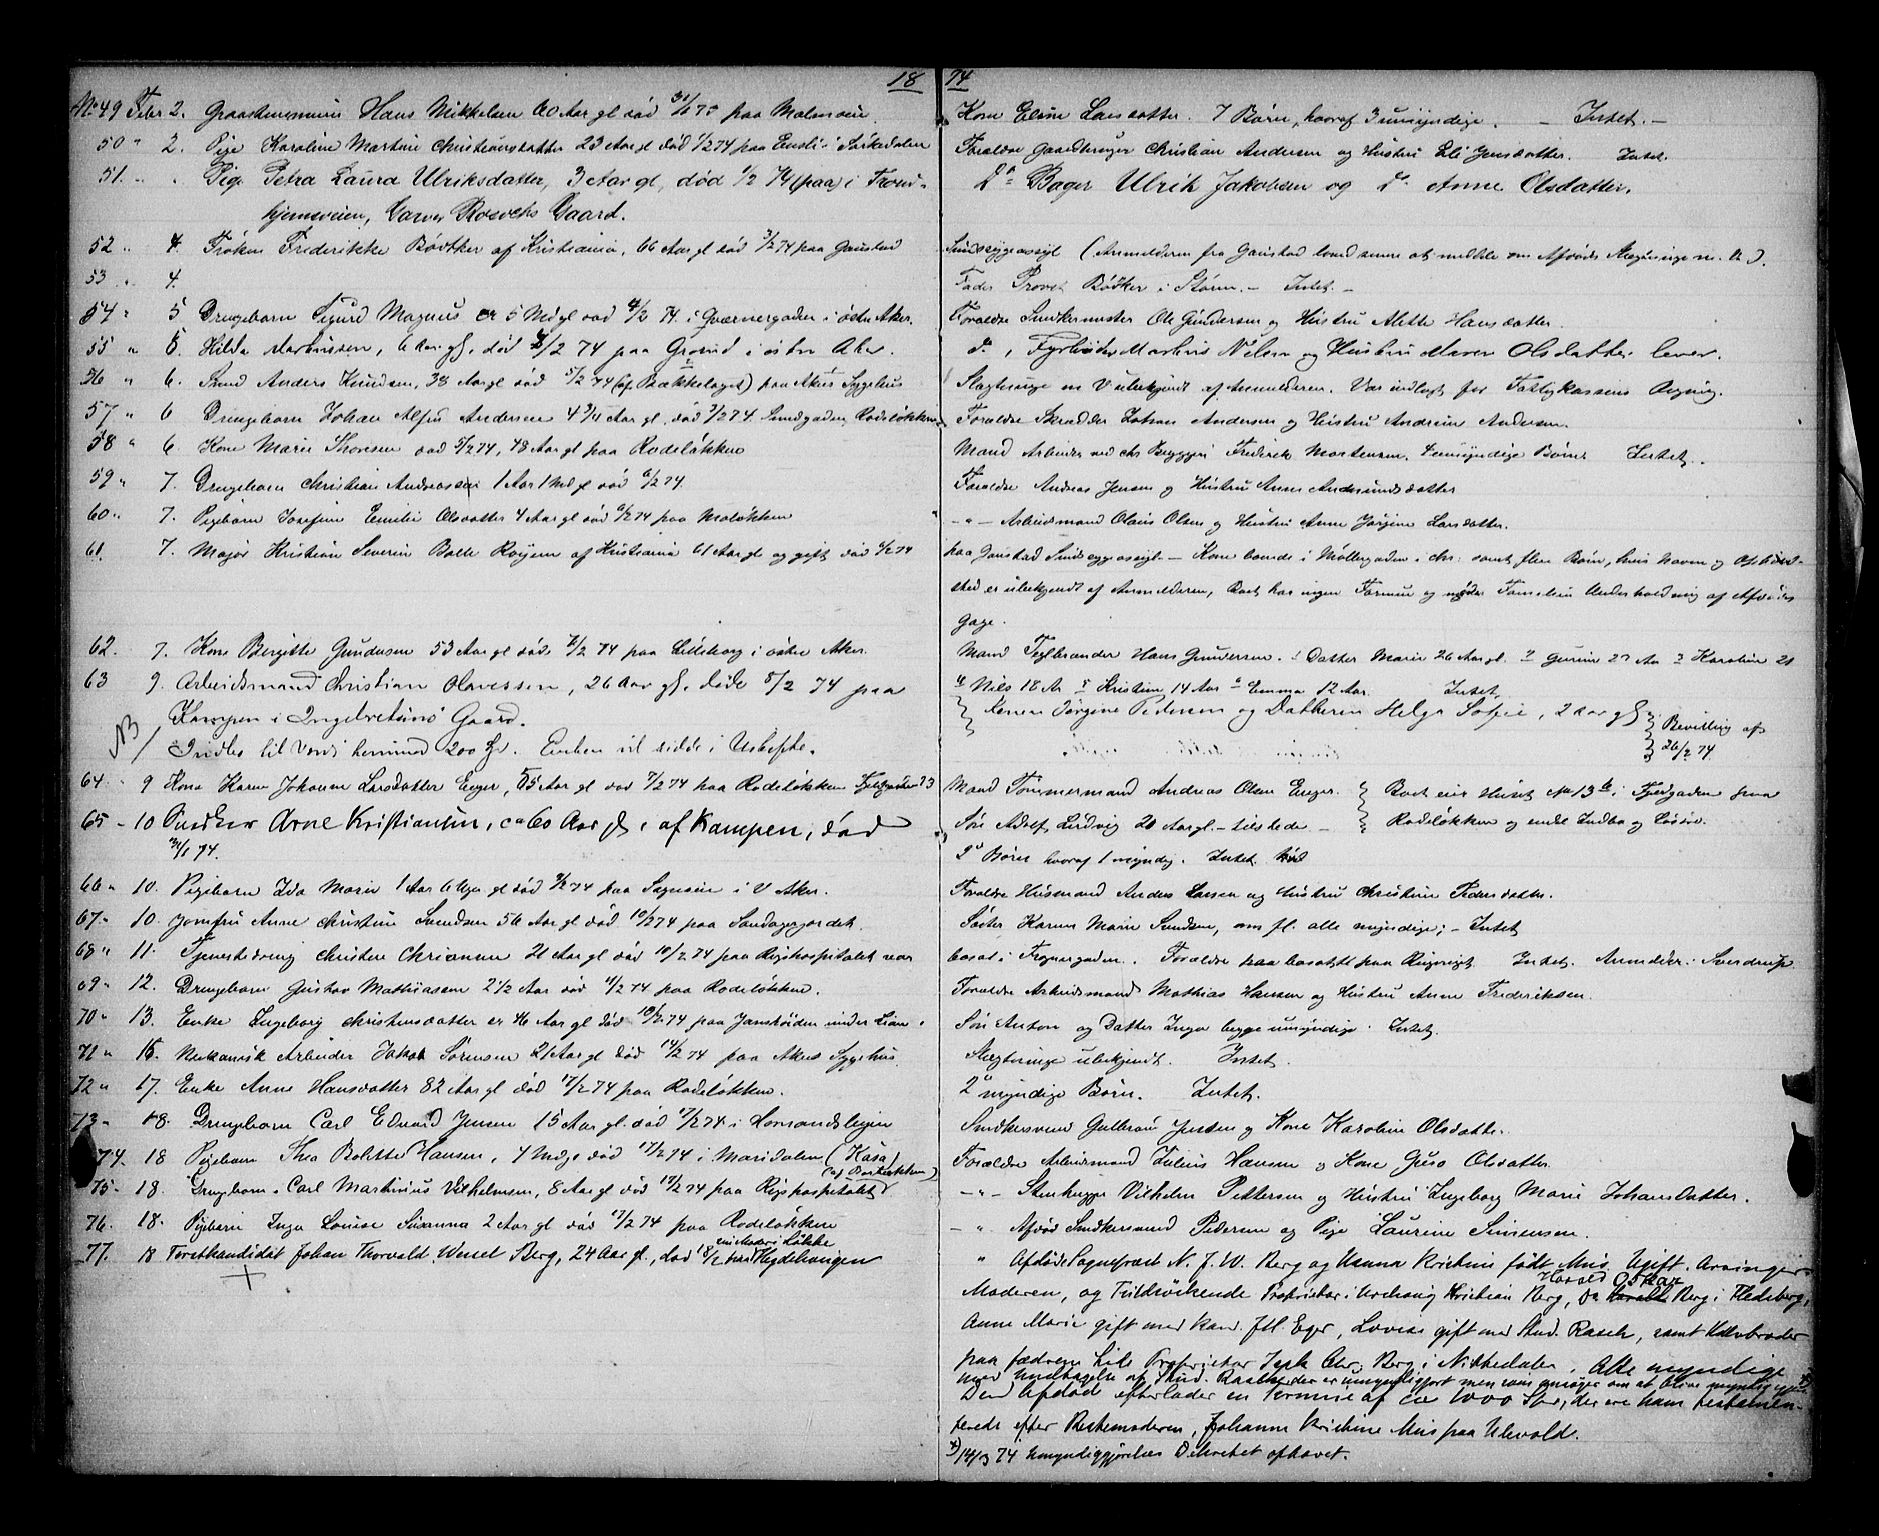 18 74
No 49 Febr 2. Hans Mikkelsen 60 Aar gl død 31/1 75 paa Malmøen. Kone Eline Larsdatter. 7 Børn, hvoraf 3 umyndige. — Intet. —
50 " 2. Pige Karoline Martine Christiansdatter 23 Aar gl død 1/2 74 paa i Sørkedalen Forældre Gaardbruger Christian Andersen og Hustru Eli Jensdatter. Intet.
51. " " Pige Petra Laura Ulriksdatter, 3 Aar gl, død 1/2 74 (paa) i Trond- Do Bager Ulrik Jakobsen og Do Anne Olsdatter.
hjemsveien, Garver Gaard.
52 " 4. Frøken Frederikke Bødtker af Kristiania, 66 Aar gl død 3/2 74 paa Gaustad Sindssygeasyl (Anmelderen fra Gaustad lovede senere at meddele om Afdødes Slægtninge m. V.).
53 " 4. Fader Provst Bødker i Støren. — Intet. —
54 " 5 Drengebarn Sigurd Magnus 5 Md gl død 4/2 74 i Qværnergaden i østre Aker. Forældre Snedkermester Ole Gundersen og Hustru Alette Hansdatter.
55 " 5. Hilda Markussen, 6 Aar gl, død 3/2 74 paa Grorud i østre Aker. Do, Fyrbøder Markus Nilsen og Hustru Maren Olsdatter lever.
56 " 6. Smed Anders Knudsen, 38 Aar gl død 5/2 74 (af Bækkelaget) paa Akers Sygehus Slægtninge er ubekjendt af Anmelderen. Var indlagt for Fattigkassens Regning.
57 " 6 Drengebarn Johan Alfred Andersen 4 3/4 Aar gl, død 3/2 74. Smedgaden, Rodeløkken Forældre Skrædder Johan Andersen og Hustru Andrine Andersen.
58 " 6 Kone Marie Thoresen død 5/2 74, 48 Aar gl paa Rodeløkken Mand Arbeider ved Chr. Bryggeri Frederik Mortensen. umyndige Børn Intet.
59 " 7. Drengebarn Christian Andreassen 1 Aar 1 Md gl død 6/2 74. Forældre Andreas Jensen og Hustru Anne Andersdatter
60 " 7. Pigebarn Josefine Emilie Olsdatter 4 Aar gl død 6/2 74 paa Moløkken — " — Arbeidsmand Olaus Olsen og Hustru Anne Jørgine Larsdatter.
61 7. Major Kristian Severin Balle Røyem af Kristiania 61 Aar gl og gift død 4/2 74 paa Gaustad Sindssygeasyl — Kone boende i Møllergaden i Chr: samt flere Børn, hvis Navne og Opholds-
sted er ubekjendt af Anmelderen, Boet har ingen Formue og Familien Underholdning af Afdødes
Gage.
62. 7. Kone Bergitte Gundersen 53 Aar gl død 7/2 74 paa Lilleborg i østre Aker. Mand Teglbrænder Hans Gundersen. 1 Datter Marie 26 Aar gl. 2 Gurine 23 Aar 3 Karoline 21
4 Nils 18 Ar 5 Kristine 14 Aar 6 Emma 12 Aar. Intet.
63 9. Arbeidsmand Christian Olavessen, 26 Aar gl, døde 8/2 74 paa Konen Jørgine Pedersen og Datteren Helga Sofie, 2 Aar gl
Kampen i Ingebretsens Gaard. Bevilling af 26/2 74.
NB / Indbo til Værdi henimod 200 Spd. Enken vil sidde i Uskiftet.
64 " 9 Kone Karen Johanne Larsdatter Enger, 55 Aar gl død 7/2 74 paa Rodeløkken Fjeldgaden 13 Mand Tømmermand Andreas Olsen Enger. Boet eier Huset No 13 b i Fjeldgaden paa
Rodeløkken og endel Indbo og Løsøre.
Søn Adolf Ludvig 20 Aar gl. — tilstede —
65 - 10 Snedker Arne Kristiansen, ca 60 Aar gl, af Kampen, død 31/1 74. Børn hvoraf 1 myndig. Intet.
66 " 10. Pigebarn Ida Marie 1 Aar 6 Uger gl død 9/2 74 paa Sognseie i V Aker. Forældre Husmand Anders Larsen og Hustru Christine Pedersdatter.
67 " 10. Jomfru Anne Christine Svendsen 56 Aar gl død 10/2 74 paa Sandagerjordet. Søster Karen Marie Svendsen, om fl. alle myndige; — Intet
68 " 11. Tjenestedreng Christen Christiansen 21 Aar gl død 10/2 74 paa Rigshospitalet var bosat i Frognergaden. Forældre bosatte paa Ringerige. Intet. Anmelder: Sverdrup.
69 " 12. Drengebarn Gustav Mathiassen 2 1/2 Aar død 11/2 74 paa Rodeløkken. Forældre Arbeidsmand Mathias Hansen og Hustru Anne Frederiksen.
70 " 13. Enke Ingeborg Christensdatter er 46 Aar gl død 10/2 74 paa under Lian. Søn Anton og Datter Inga begge umyndige. Intet.
71 " 15. Mekanisk Arbeider Jakob Sørensen 21 Aar gl død 14/2 74 paa Akers Sygehus. Slægtninge ubekjendt. Intet.
72 " 17. Enke Anne Hansdatter 82 Aar gl død 17/2 74 paa Rodeløkken. 2 myndige Børn. Intet.
73 " 18. Drengebarn Carl Edvard Jensen 15 Aar gl. død 17/2 74 i Homansbyen Snedkersvend Gulbrand Jensen og Kone Karoline Olsdatter.
74. 18 Pigebarn Thea Bolette Hansen, 4 Md gl død 17/2 74 i Maridalen (Kasa) Forældre Arbeidsmand Julius Hansen og Kone Olsdatter.
75 - 18. Drengebarn Carl Martinius Vilhelmsen, 8 Aar gl død 17/2 74 paa Rigshospitalet — " — Stenhugger Vilhelm Pettersen og Hustru Ingeborg Marie Johansdatter.
76. 18. Pigebarn Inga Louise Susanna 2 Aar gl død 17/2 74 paa Rodeløkken — " Afdød Snedkersvend Pedersen og Pige Laurine Simensen.
77. 18 Forstkandidat Johan Thorvald Wessel Berg, 24 Aar gl, død 18/2 ved Hegdehaugen " Afdøde Sogneprest N. J. W. Berg og Hanna Kristine født Mus. Ugift. Arvinger
Moderen, og Fuldsøskende Proprietær i Urskoug Kristian Berg, Do Harald Oskar Berg i Hedeberg,
Anne Marie gift med Kand. fil. Eger, Lovise gift med Stud. Rasch, samt Halvbroder
paa fædrene Side Proprietær Jørk Chr. Berg i Nittedalen. Alle myndige
med Undtagelse af Stud. Rasch der er umyndiggjort men som ansøger om at blive myndig igjen.
Den Afdød efterlader en Formue af ca 1000 Spd, der ere ham testamen-
terede efter Bestemoderen, Johanne Kristine Mus paa Ulevold.
*) 14/3 74 Umyndiggjørelses Dekretet ophævet.